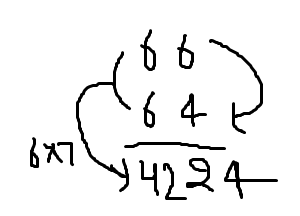 66
64
6x7
4224